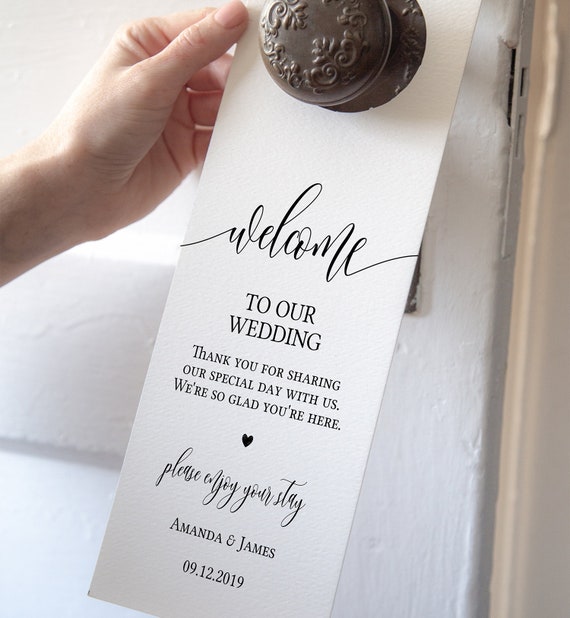 welcome
TO OUR
WEDDING
THANK YOU FOR SHARING
OUR SPECIAL DAY WITH US.
WE'RE SO GLAD YOU'RE HERE.
please enjoy your stay
AMANDA & JAMES
09.12.2019